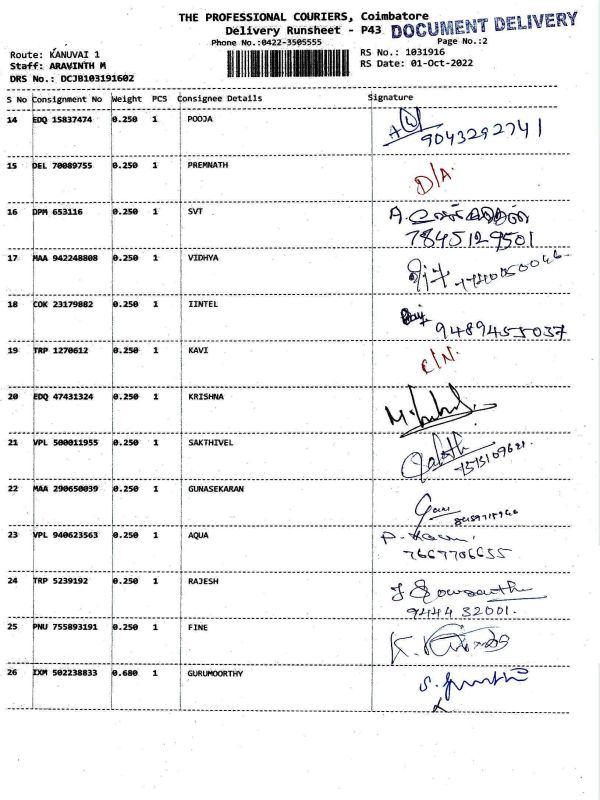 THE PROFESSIONAL COURIERS, Coimbatore
Delivery Runsheet - P43 DOCUMENT DELIVERY
Phone No.:0422-3505555 Page No.:2
Route: KANUVAI 1 RS No.: 1031916
Staff: ARAVINTH M RS Date: 01-Oct-2022
DRS No.: DCJB103191602
S No Consignment No Weight PCS Consignee Details Signature
14 EDQ 15837474 0.250 1 POOJA
9043292741
15 DEL 70089755 0.250 1 PREMNATH
D/A.
16 DPM 653116 0.250 1 SVT
7845129501
17 MAA 942248808 0.250 1 VIDHYA
18 COK 23179882 0.250 1 IINTEL
9489455037
19 TRP 1270612 0.250 1 KAVI
C/N.
20 EDQ 47431324 0.250 1 KRISHNA
21 VPL 500011955 0.250 1 SAKTHIVEL
22 MAA 290650039 0.250 1 GUNASEKARAN
23 VPL 940623563 0.250 1 AQUA
7667706655
24 TRP 5239192 0.250 1 RAJESH
9444 32001.
25 PNU 755893191 0.250 1 FINE
26 IXM 502238833 0.680 1 GURUMOORTHY